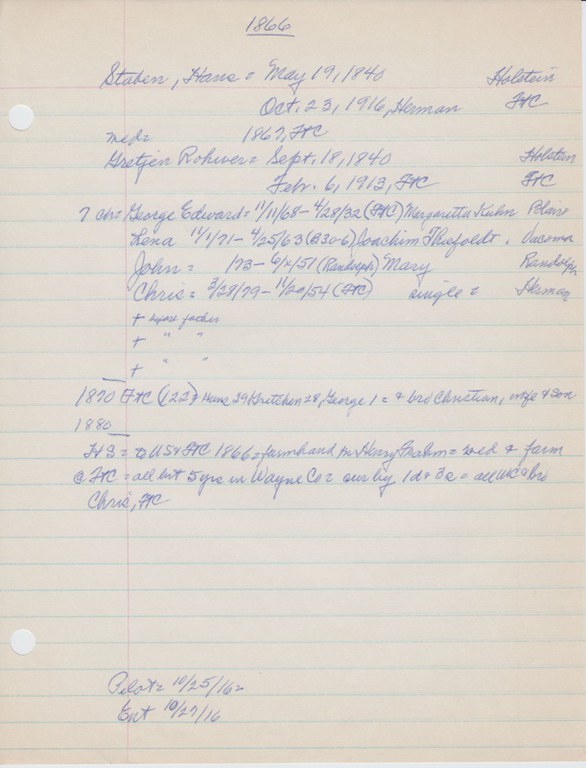 1866
Staben, Hans = May 19, 1840 Holstein
Oct. 23, 1916, Herman FtC
med = 1867, FtC
Gretjen Rohwer = Sept. 18, 1840 Holstein
Feb. 6, 1913, FtC FtC
7 ch = George Edward = 11/11/68 - 4/28/32 (FtC) Margaretta Kuhn Blair
Lena 11/1/71 - 4/25/63 (B30-6) Joachim Thefoldt, Tacoma
John = /73 - 6/x/51 (Randolph) Mary Randolph
Chris = 3/28/79 - 11/20/54 (FtC) single = Herman
+ before father
+ " "
+ " "
1870 FtC (122) Hans 29 Gretchen 28, George 1 = & bro Christian, wife & son
1880
HS = to US & FtC 1866 = farmhand for Henry Frahm = wed & farm
@ FtC = all but 5 yrs in Wayne Co = surv by 1 d & 3 s = all WC & bro
Chris, FtC
Pilot = 10/25/16 =
Ent 10/27/16